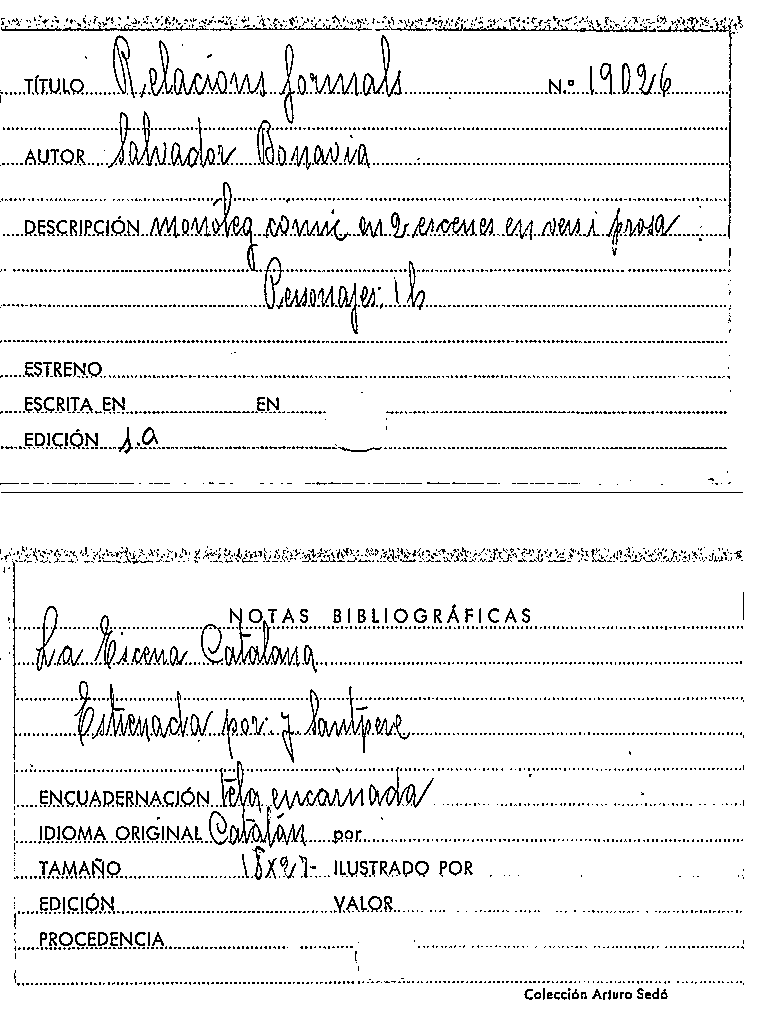 TÍTULO Relacions formals N.º 19026
AUTOR Salvador Bonavia
DESCRIPCIÓN monoleg comic en 2 escenes en vers i prosa
Personajes: 1 h
ESTRENO
ESCRITA EN EN
EDICIÓN s.a
NOTAS BIBLIOGRÁFICAS
La Escena Catalana
Estrenada por J Santpere
ENCUADERNACIÓN tela encarnada
IDIOMA ORIGINAL Catalán por
TAMAÑO 18x27- ILUSTRADO POR
EDICIÓN VALOR
PROCEDENCIA
Colección Arturo Sedó